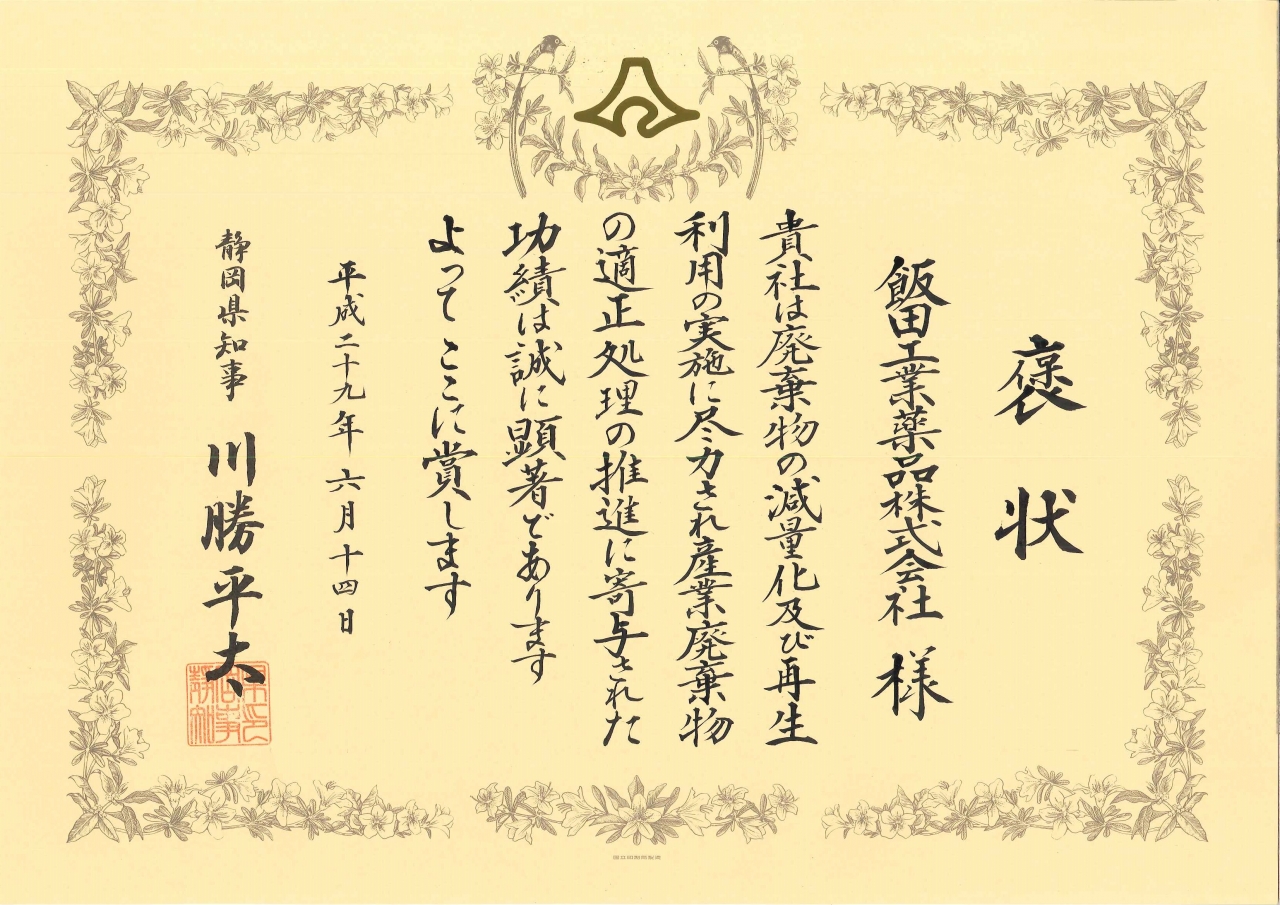 褒状
飯田工業薬品株式会社 様
貴社は廃棄物の減量化及び再生
利用の実施に尽力され産業廃棄物
の適正処理の推進に寄与された
功績は誠に顕著であります
よって ここに賞します
平成二十九年六月十四日
静岡県知事 川勝平太